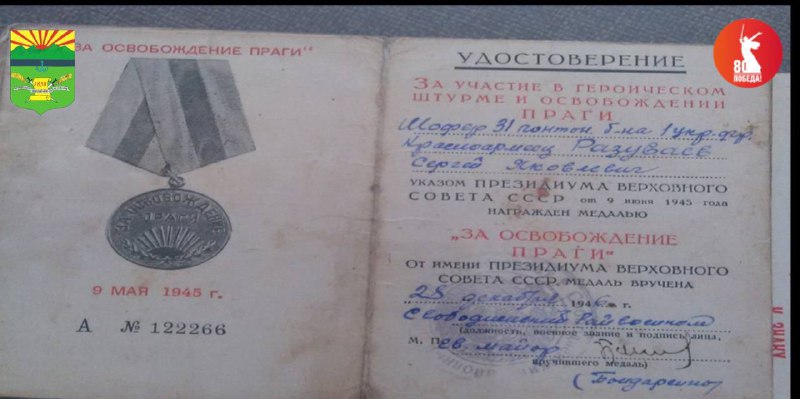 "ЗА ОСВОБОЖДЕНИЕ ПРАГИ"
ЗА ОСВОБОЖДЕНИЕ
ПРАГИ
9 МАЯ 1945 г.
А № 122266
УДОСТОВЕРЕНИЕ
ЗА УЧАСТИЕ В ГЕРОИЧЕСКОМ
ШТУРМЕ И ОСВОБОЖДЕНИИ
ПРАГИ
Шофер 31 понтон. б-на 1 укр. фр.
Красноармеец Разуваев
Сергей Яковлевич
УКАЗОМ ПРЕЗИДИУМА ВЕРХОВНОГО
СОВЕТА СССР от 9 июня 1945 года
НАГРАЖДЕН МЕДАЛЬЮ
„ЗА ОСВОБОЖДЕНИЕ
ПРАГИ"
ОТ ИМЕНИ ПРЕЗИДИУМА ВЕРХОВНОГО
СОВЕТА СССР МЕДАЛЬ ВРУЧЕНА
28 декабря 194 г.
Свободненский Райвоенком
(должность, военное звание и подпись лица,
М. П. майор
вручившего медаль)
(Бондаренко)
80
ПОБЕДА!